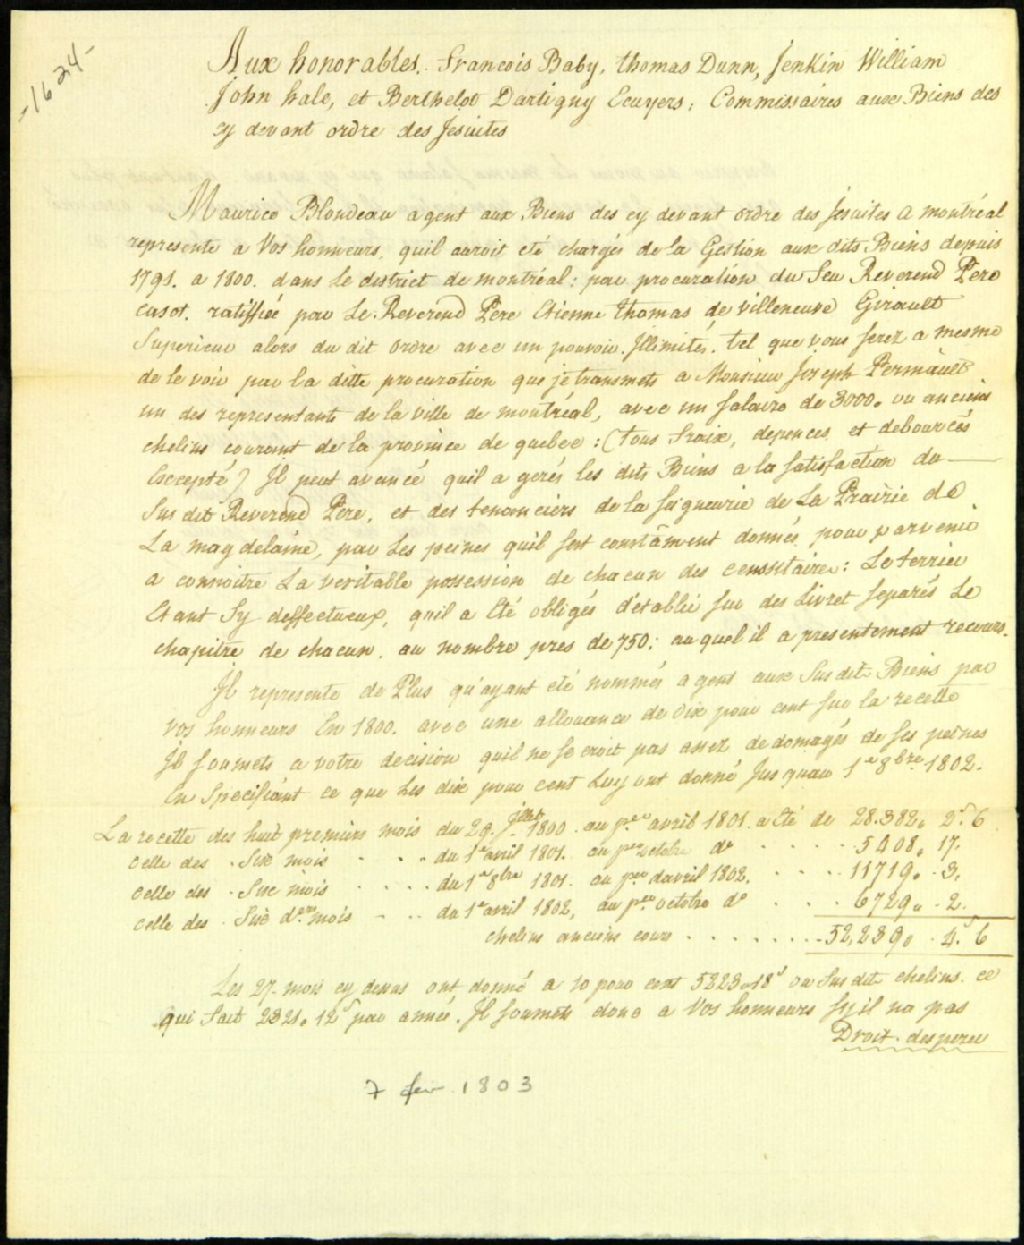 -1624-
Aux honorables. Francois Baby, thomas Dunn, Jenkin William
John hale, et Berthelot Dartigny Ecuyers; Commissaires aux Biens des
cy devant ordre des Jesuites
Maurice Blondeau agent aux Biens des cy devant ordre des Jesuites a montréal
represente a Vos honneurs, quil auroit eté chargés de la Gestion aux dits Biens depuis
1795. a 1800. dans le district de montréal; par procuration du feu Reverend Pere
casot. ratiffiée par Le Reverend Pere Etienne thomas de villeneuve Girault
Superieur alors du dit ordre avec un pouvoir Jllimités. tel que vous serez a mesme
de le voir par la ditte procuration que je transmets a Monsieur Joseph
un des representants de la ville de montréal, avec un salaire de 3000. ou anciens
chelins courant de la province de quebec: (tous fraix, depences et debourcés
Excepté) Il peut avancé quil a gerés les dits Biens a la satisfaction du
Sus dit Reverend Pere, et des tenanciers de la seigneurie de La Prairie de
La magdelaine, par Les peines quil sest constâment donnés pour parvenir
a connoitre La veritable possession de chacun des censsitaires: Le terrier
Etant Sy deffectueux, quil a Eté obligés d'établir sur des Livret separés Le
chapitre de chacun. au nombre pres de 750: auquel il a presentement recours.
Jl represente de Plus qu'ayant eté nommés agent aux Susdits Biens par
vos honneurs En 1800. avec une allouance de dix pour cent sur la recette
Jl soumets a votre decision quil ne se croit pas assez dedomagés de ses peines
En Specifiant ce que Les dix pour cent Luy ont donné Jusquau 1er 8bre 1802.
La recette des huit premiers mois du 29. jillet 1800. au per avril 1801. a Eté de 28.382. 2. 6
celle des . Six mois . . . . du 1er avril 1801. au per octobre do . . . . . . 5408. 17.
celle des . Six mois . . . . du 1er 8bre 1801. au per davril 1802. . . . . 11719. . 3.
celle des . Six ders mois . . . du 1er avril 1802, au per octobre do . . . . 6729. . 2.
chelins anciens cours . . . . . . . . 52,239. . 4. 6
Les 27. mois cy dessus ont donné a 10 pour cent 5223. 18s ou Susdit chelins. ce
qui fait 2321. 12s par année. Jl soumets donc a Vos honneurs Syil na pas
Droit desperer
7 fev. 1803